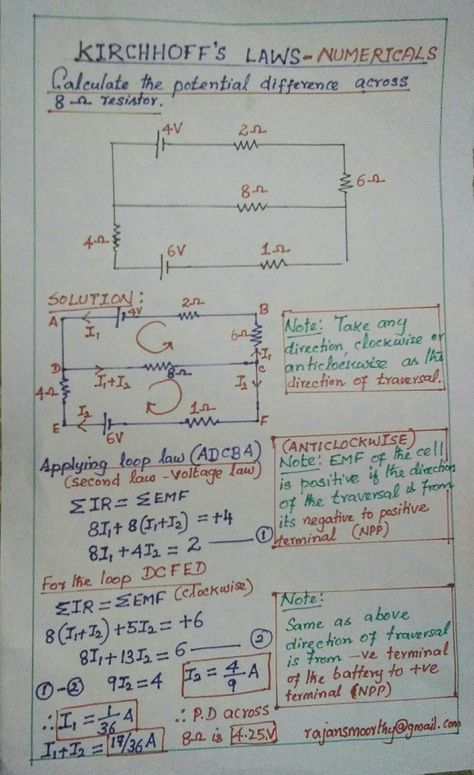 KIRCHHOFF'S LAWS - NUMERICALS
Calculate the potential difference across
8 Ω resistor.
4V
2Ω
6Ω
8Ω
4Ω
6V
1Ω
SOLUTION:
A
4V
2Ω
B
I₁
6Ω
I₁
D
8Ω
C
I₁+I₂
I₂
4Ω
I₂
1Ω
E
6V
F
Note: Take any
direction, clockwise or
anticlockwise as the
direction of traversal.
Applying loop law (ADCBA)
(second law - Voltage law)
ΣIR = ΣEMF
8I₁ + 8(I₁+I₂) = +4
8I₁ + 4I₂ = 2 ①
(ANTICLOCKWISE)
Note: EMF of the cell
is positive if the direction
of the traversal is from
its negative to positive
terminal (NPP)
For the loop DCFED
(clockwise)
ΣIR = ΣEMF
8(I₁+I₂) + 5I₂ = +6
8I₁ + 13I₂ = 6 ②
① - ② 9I₂ = 4 I₂ = 4/9 A
∴ I₁ = 1/36 A
I₁+I₂ = 17/36 A
∴ P.D across
8Ω is 4.25V
Note:
Same as above
direction of traversal
is from -ve terminal
of the battery to +ve
terminal (NPP)
rajansmoorthy@gmail.com